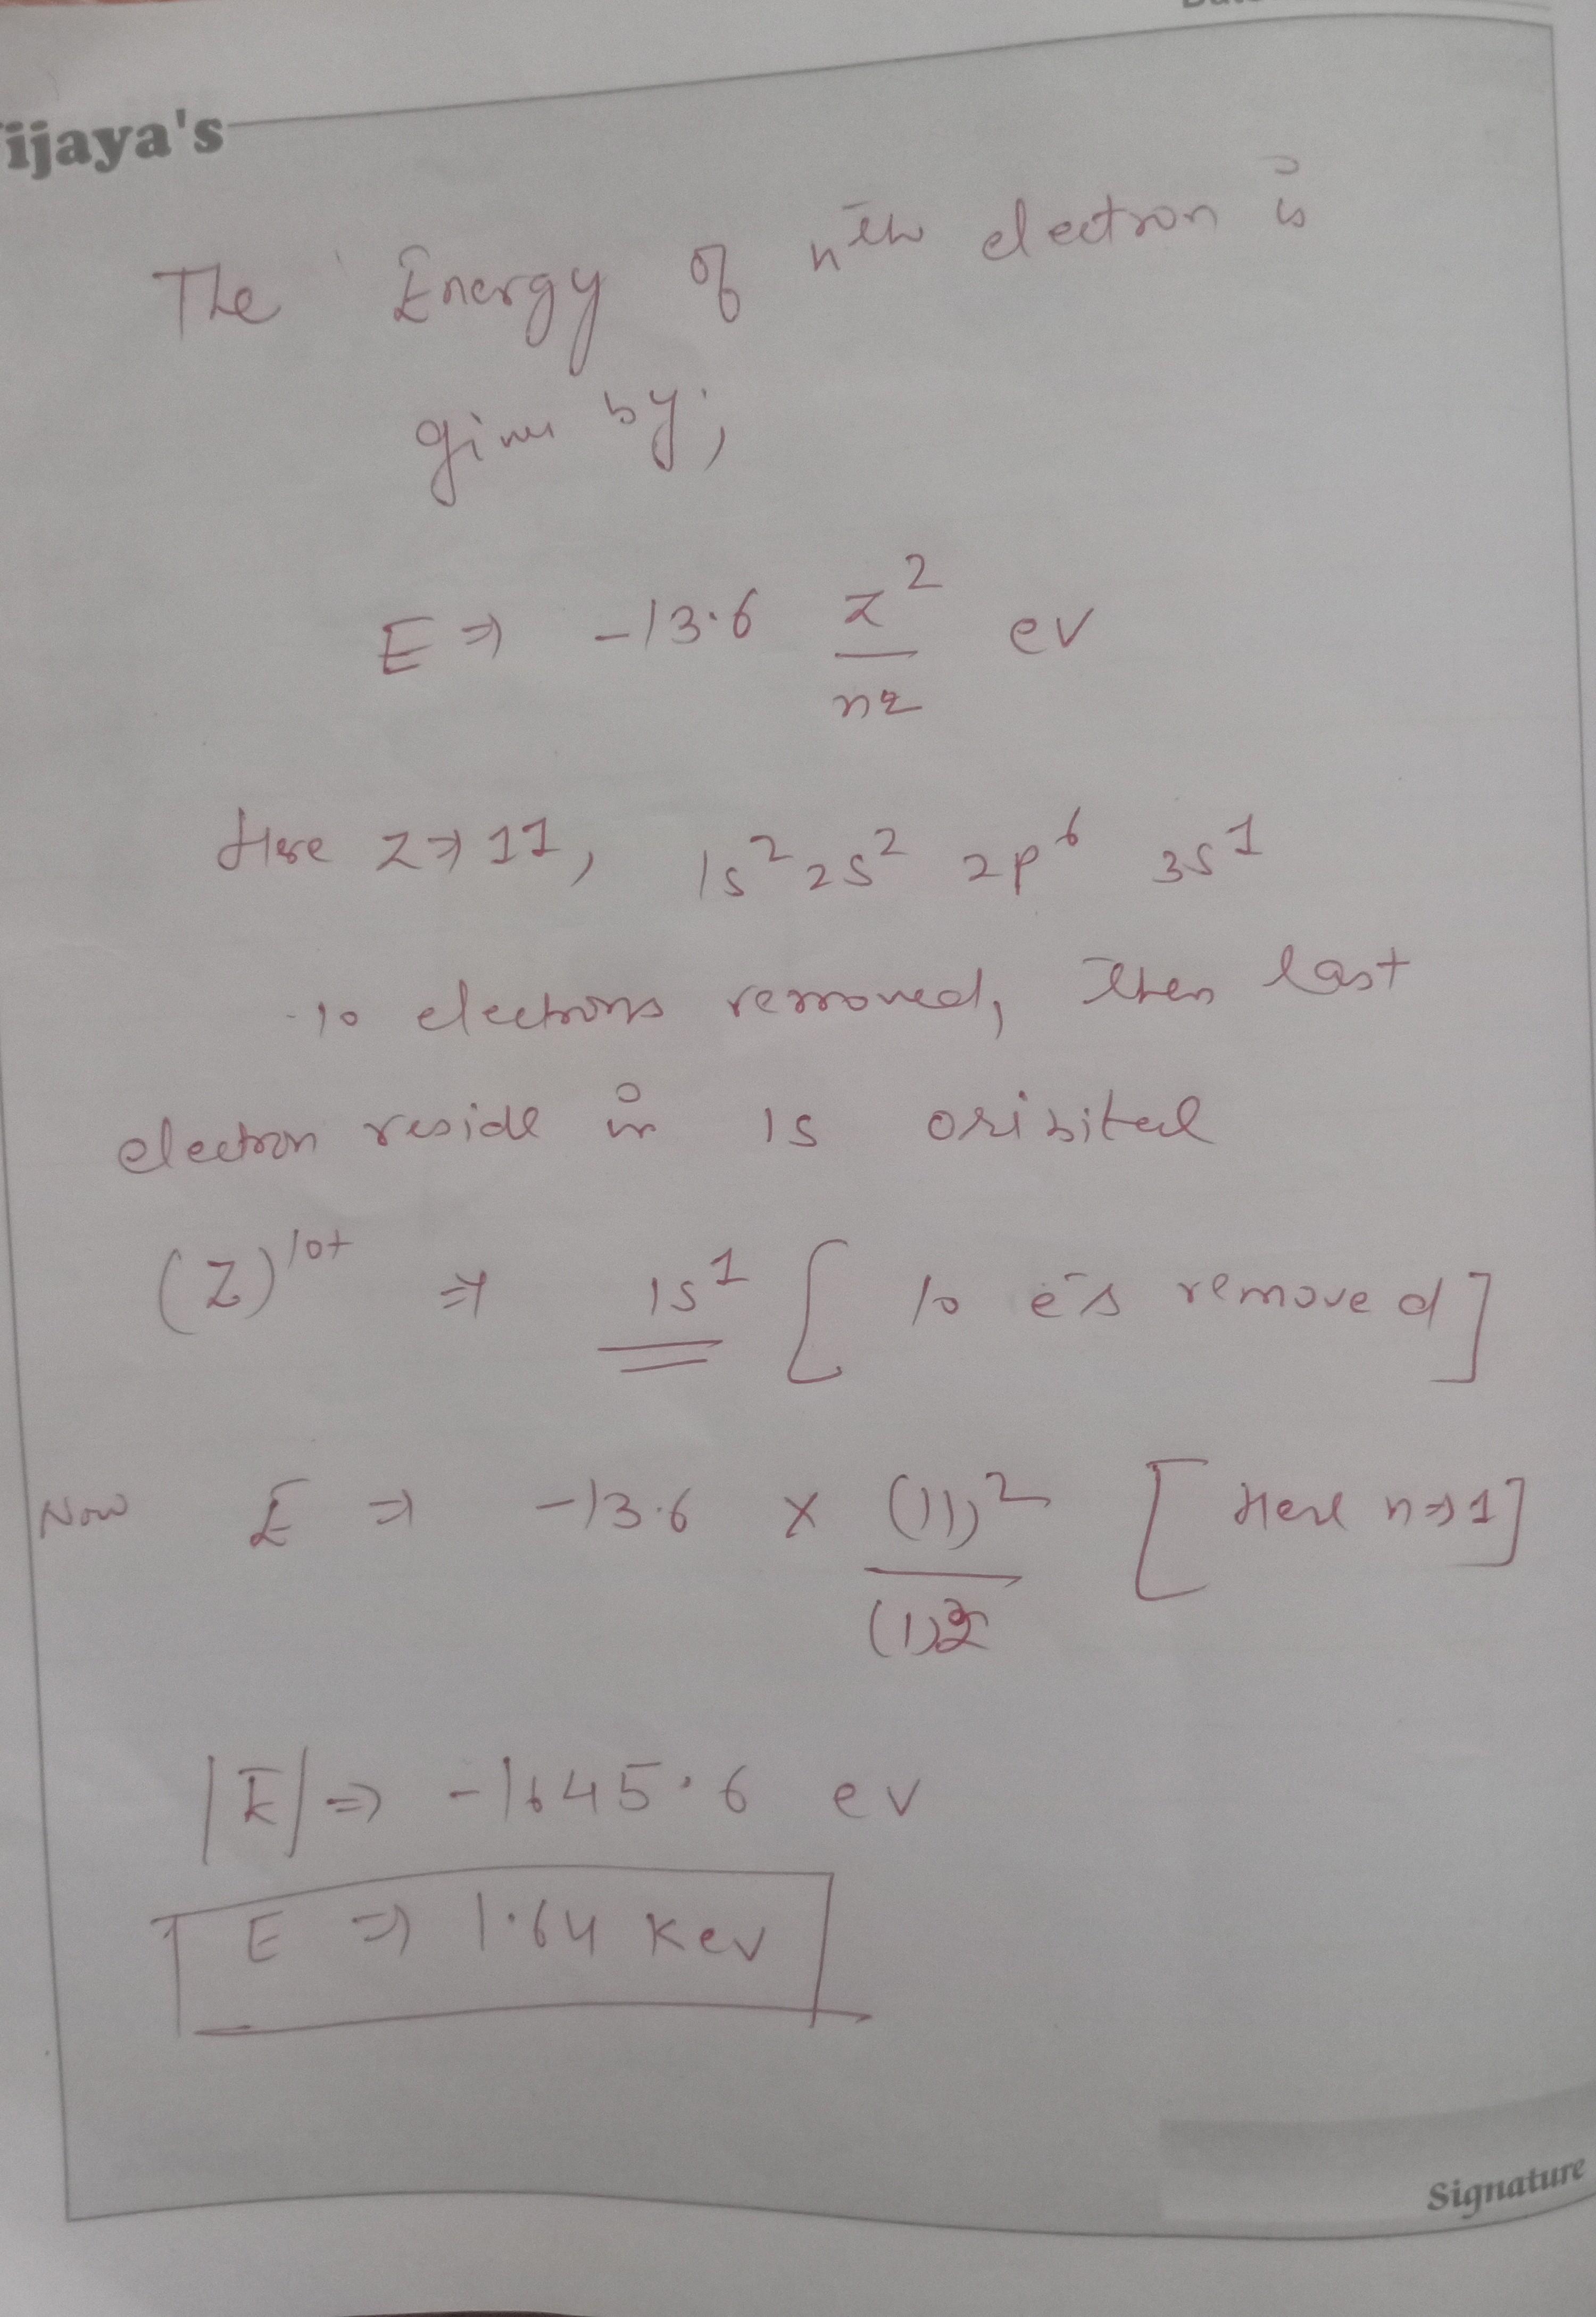 ijaya's
The Energy of nth electron is
given by;
E ⇒ -13.6 z²/n² ev
Here Z⇒11, 1s² 2s² 2p⁶ 3s¹
10 electrons removed, then last
electron reside in 1s oribital
(Z)¹⁰⁺ ⇒ 1s¹ [10 e⁻s removed]
Now E ⇒ -13.6 × (11)²/(1)² [Here n⇒1]
|E| ⇒ -1645.6 ev
E ⇒ 1.64 Kev
Signature